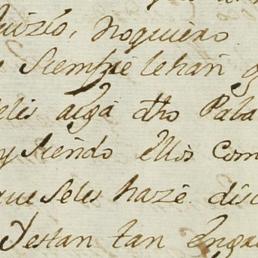 Juizio, noquiero
siempre lehan
eles aiga dho Pala
y siendo ellos com
que seles haze disc
Yestan tan enga